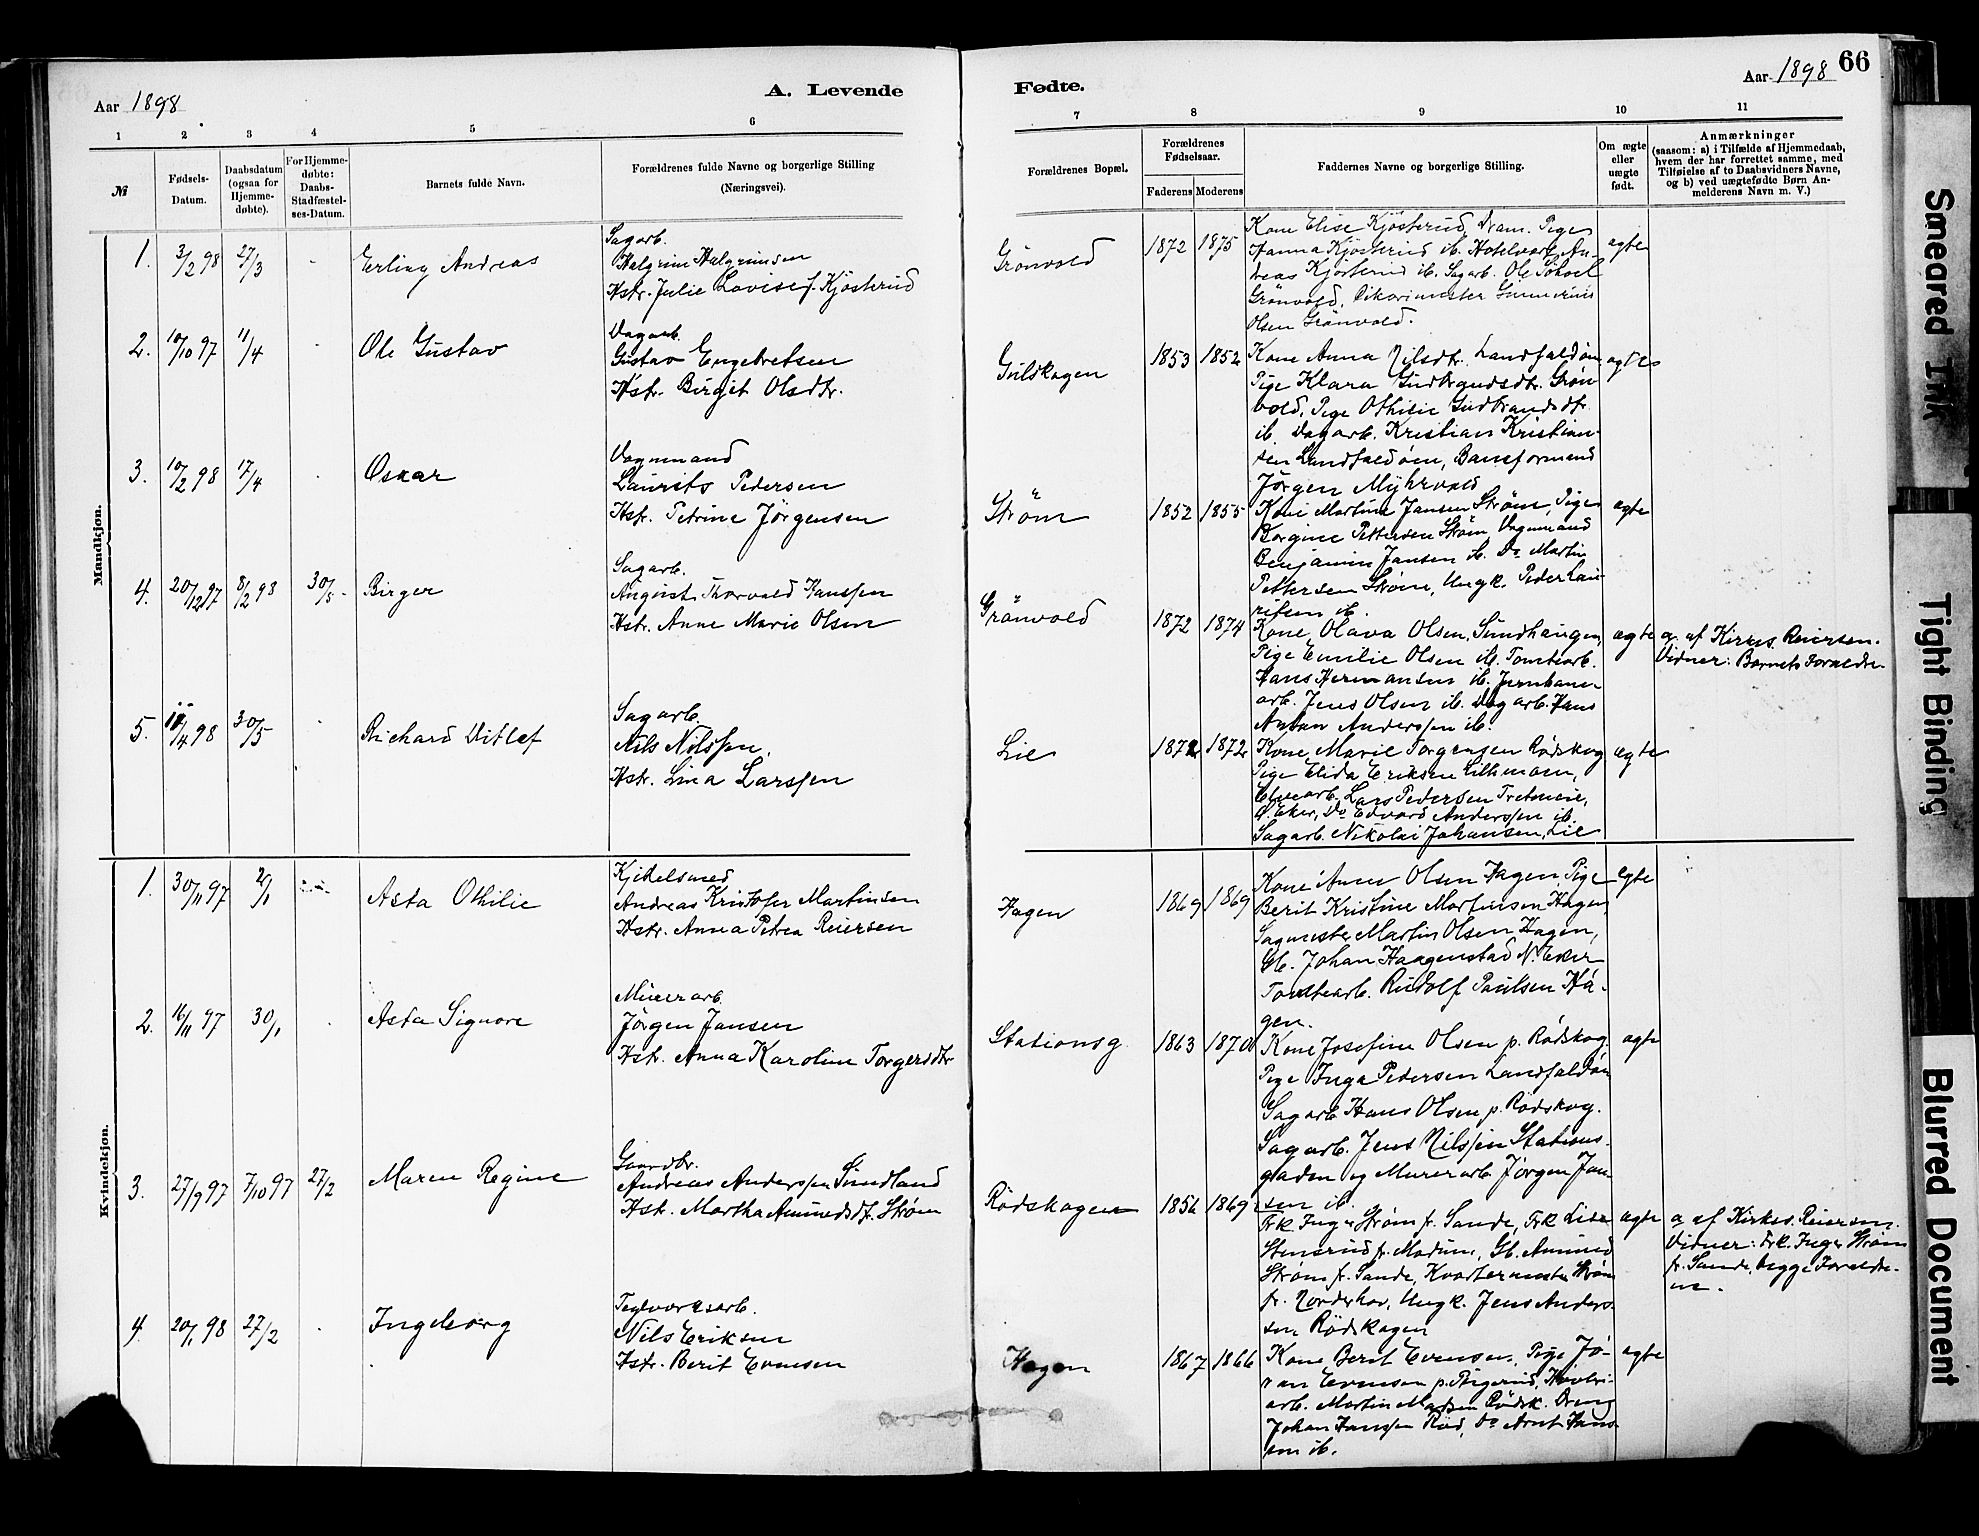 Aar 1898
A. Levende
Fødte.
Aar 1898
66
1 2 3 4 5 6 7 8 9 10 11
№
Fødsels-
Datum.
Daabsdatum
(ogsaa for
Hjemme-
døbte).
For Hjemme-
døbte:
Daabs-
Stadfæstel-
ses-Datum.
Barnets fulde Navn.
Forældrenes fulde Navne og borgerlige Stilling
(Næringsvei).
Forældrenes Bopæl.
Forældrenes
Fødselsaar.
Faderens Moderens
Faddernes Navne og borgerlige Stilling.
Om ægte
eller
uægte
født.
Anmærkninger
(saasom: a) i Tilfælde af Hjemmedaab,
hvem der har forrettet samme, med
Tilføielse af to Daabsvidners Navne,
og b) ved uægtefødte Børn An-
melderens Navn m. V.)
Mandkjøn.
1. 3/2 98 27/3 - Erling Andreas
Sagarb.
Halgrim Halgrimsen
Hstr. Julie Lovise f. Kjösterud
Grönvold 1872 1875
Kone Elise Kjösterud, Dram. Pige
Hanna Kjösterud ib. Hotelvært An-
dreas Kjösterud ib. Sagarb. Ole
Grönvold,
Olsen Grönvold.
ægte
2. 10/10 97 11/4 - Ole Gustav
Dagarb.
Gustav Engebretsen
Hstr. Birgit Olsdtr.
1853 1852
Kone Anna Nilsdtr. Landfaldøen
Pige Klara Gudbrandsdtr. Grøn
vold, Pige Othilie Gudbrandsdtr
ib. Dagarb. Kristian Kristian-
sen Landfaldøen, Baneformand
Jörgen Myhrvold
ægte
3. 10/2 98 17/4 - Oskar
Vognmand
Laurits Pedersen
Hstr. Petrine Jörgensen
Ström 1852 1855
Kone Martine Jansen Strøm, Pige
Borgine Pettersen Strøm, Vognmand
Benjamin Jansen ib. Do Martin
Pettersen Strøm, Ungk. Peder Lau-
ritsen ib.
ægte
4. 20/12 97 8/2 98 30/5 - Birger
Sagarb.
August Thorvald Hanssen
Hstr. Anne Marie Olsen
Grönvold 1872 1874
Kone Olava Olsen, Sundhaugen,
Pige Emilie Olsen ib. Tomtearb.
Hans Hermansen ib. Jernbane
arb. Jens Olsen ib. Dagarb. Hans
Anton Anderssen ib.
ægte
a. af Kirkes. Reiersen.
Vidner: Barnets Forældre.
5. 11/4 98 30/5 - Richard Ditlef
Sagarb.
Nils Nilssen,
Hstr. Lina Larssen
Lie 1872 1872
Kone Marie Torgersen Rødskog
Pige Elida Eriksen
Lars Pedersen
Ø. Eker, Do Edvard Anderssen ib.
Sagarb. Nikolai Johansen, Lie
ægte
Kvindekjøn.
1. 30/11 97 2/1 Asta Othilie
Kjedelsmed
Andreas Kristofer Martinsen
Hstr. Anna Petrea Reiersen
Hagen 1869 1869
Kone Anne Olsen Hagen, Pige
Berit Kristine Martinsen Hagen,
Sagmester Martin Olsen Hagen,
Gb. Johan Haagenstad N. Eker
Tomtearb. Rudolf Paulsen Ha-
gen.
ægte
2. 16/11 97 30/1 - Asta Signore
Murerarb.
Jörgen Jansen
Hstr. Anna Karoline Torgersdtr
Stationsg. 1863 1870
Kone Josefine Olsen p. Rödskog.
Pige Inga Pedersen Landfaldøen
Sagarb. Hans Olsen p. Rödskog.
Sagarb. Jens Nilssen Stations-
gladen og Murerarb. Jörgen Jan-
sen ib.
ægte
3. 27/9 97 7/10 97 27/2 Maren Regine
Gaardbr.
Andreas Anderssen Sundland
Hstr. Martha Amundsdtr. Ström
Rödskogen 1856 1869
Frk Inger Strøm fr. Sande, Frk Lise
Stenserud fr. Modum, Gb. Amund
Strøm fr. Sande, Kvartermester Strøm
fr. Norderhov, Ungk. Jens Anders-
sen Rödskogen
ægte
a af Kirkes. Reiersen.
Vidner: Frk. Inger Strøm
fr. Sande, begge Forældre-
ne.
4. 20/1 98 27/2 - Ingeborg
Teglværksarb.
Nils Eriksen
Hstr. Berit Evensen
Hagen 1867 1866
Kone Berit Evensen, Pige Jö-
ran Evensen p.
arb. Martin Madsen Rødsk. Dreng
Johan Hanssen Rød, Do Arnt Hans-
sen ib.
ægte
Smeared Ink
Tight Binding
Blurred Document